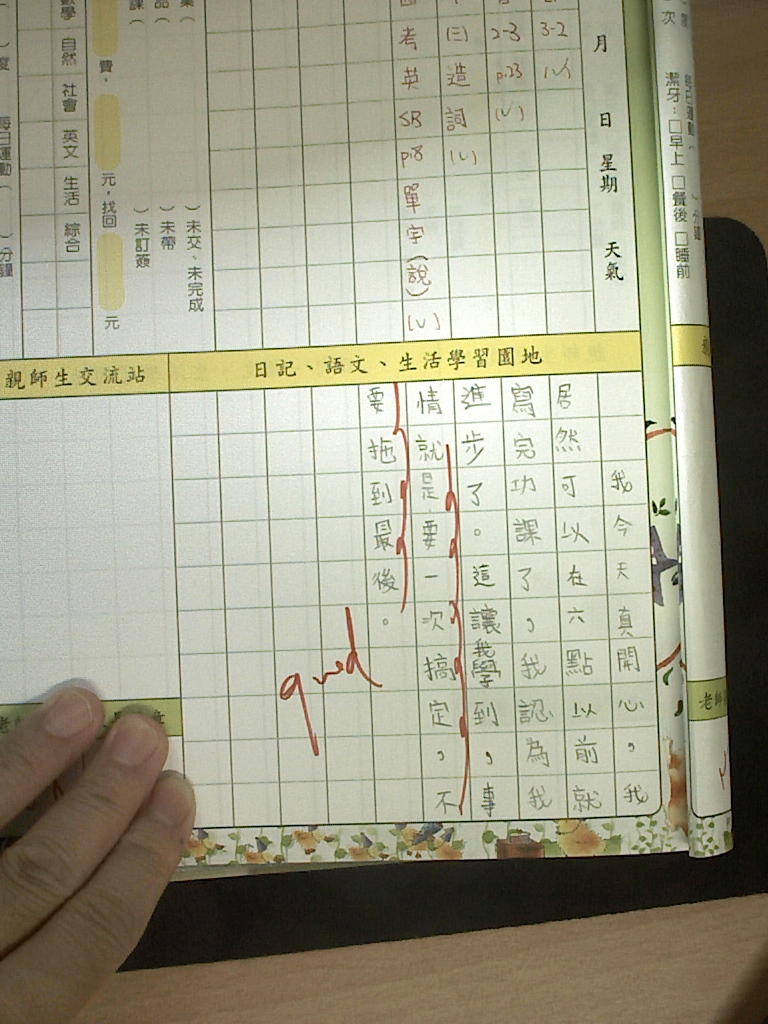 次
潔牙：□早上 □餐後 □睡前
月 日 星期 天氣
3-2
(✓)
2-3
p.23
(✓)
(三)造詞
(✓)
考英SB
p.8
單字(說)
(✓)
)未交、未完成
)未帶
)未訂簽
費，
元，找回
元
數學 自然 社會 英文 生活 綜合
日記、語文、生活學習園地
我今天真開心，我
居然可以在六點以前就
寫完功課了，我認為我
進步了。這讓我學到，事
情就是要一次搞定，不
要拖到最後。
good
親師生交流站